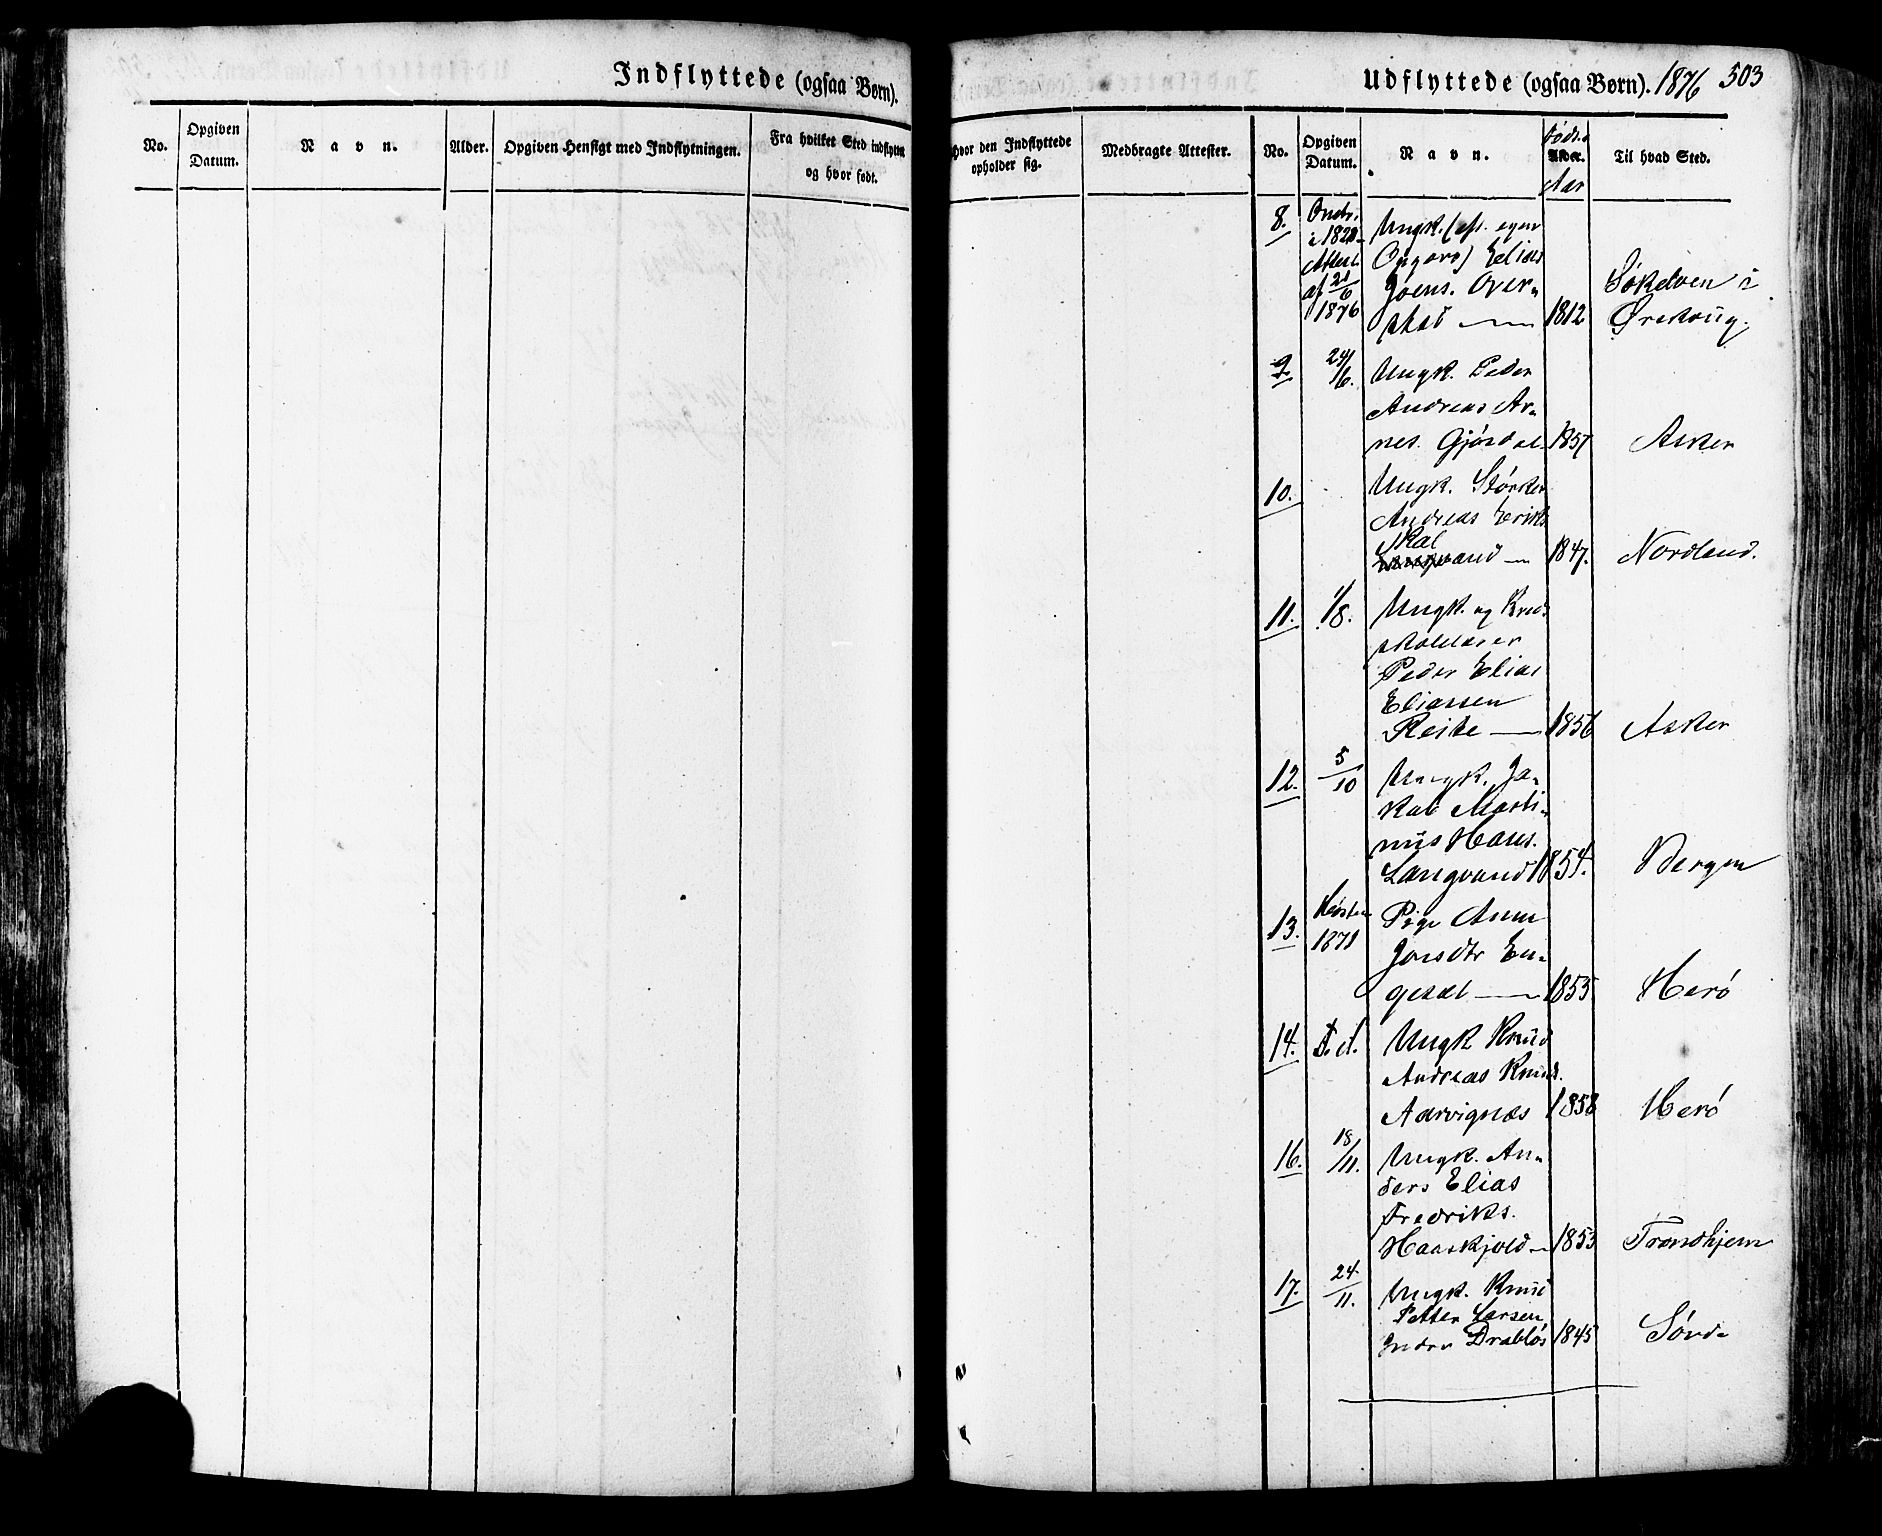 Indflyttede (ogsaa Børn).
No.
Opgiven
Datum.
Navn.
Alder.
Opgiven Hensigt med Indflytningen.
Fra hvilket Sted indflyttet
og hvor født.
Udflyttede (ogsaa Børn). 1876 503
Hvor den Indflyttede
opholder sig.
Medbragte Attester.
No.
Opgiven
Datum.
Navn.
Føds.
Alder.
Aar
Til hvad Sted.
8.
i 1828
Attest
af 21/6
1876
Ungk. (eft. egen
Opgave) Elias
Joens. Over-
skod 1812 Søkelven i
Ørskoug.
9. 24/6. Ungk. Peder
Andreas Ar-
nes. Gjøsdal 1857 Asker
10. Ungk. Størker
Andreas Eriks.
Skal
vand 1847. Nordland.
11. 1/8. Ungk. og Kreds
skolelærer
Peder Elias
Eliassen
Reite 1856 Asker
12. 5/10 Ungk. Ja-
kob Marti-
nus Hans.
Langvand 1854. Bergen
13. Høsten
1871
Pige Anne
Jonsdtr En-
gesæt 1855 Herø
14. D. d. Ungk Knud
Andreas Knuds.
Aarvignæs 1858 Herø
16. 18/11. Ungk. An-
ders Elias
Fredriks.
Haaskjold 1853 Trondhjem
17. 24/11. Ungk. Knud
Petter Larsen
Indre Drabløs 1845 Søvde